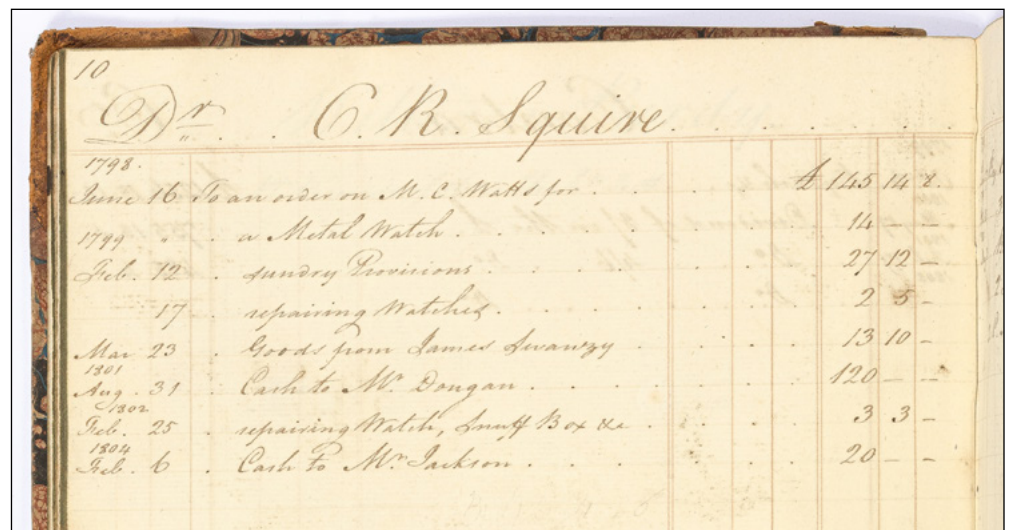 10
Dr. C. R. Squire
1798.
June 16 To an order on M. C. Watts for £ 145 14 8.
1799 " a Metal Watch 14 - -
Feb. 12 sundry Provisions 27 12 -
17 repairing Watches 2 5 -
Mar 23 Goods from James Swanzy 13 10 -
1801
Aug. 31 Cash to Mr Dongan 120 - -
1802
Feb. 25 repairing Watch, Snuff Box &c 3 3 -
1804
Feb. 6 Cash to Mr Jackson 20 - -